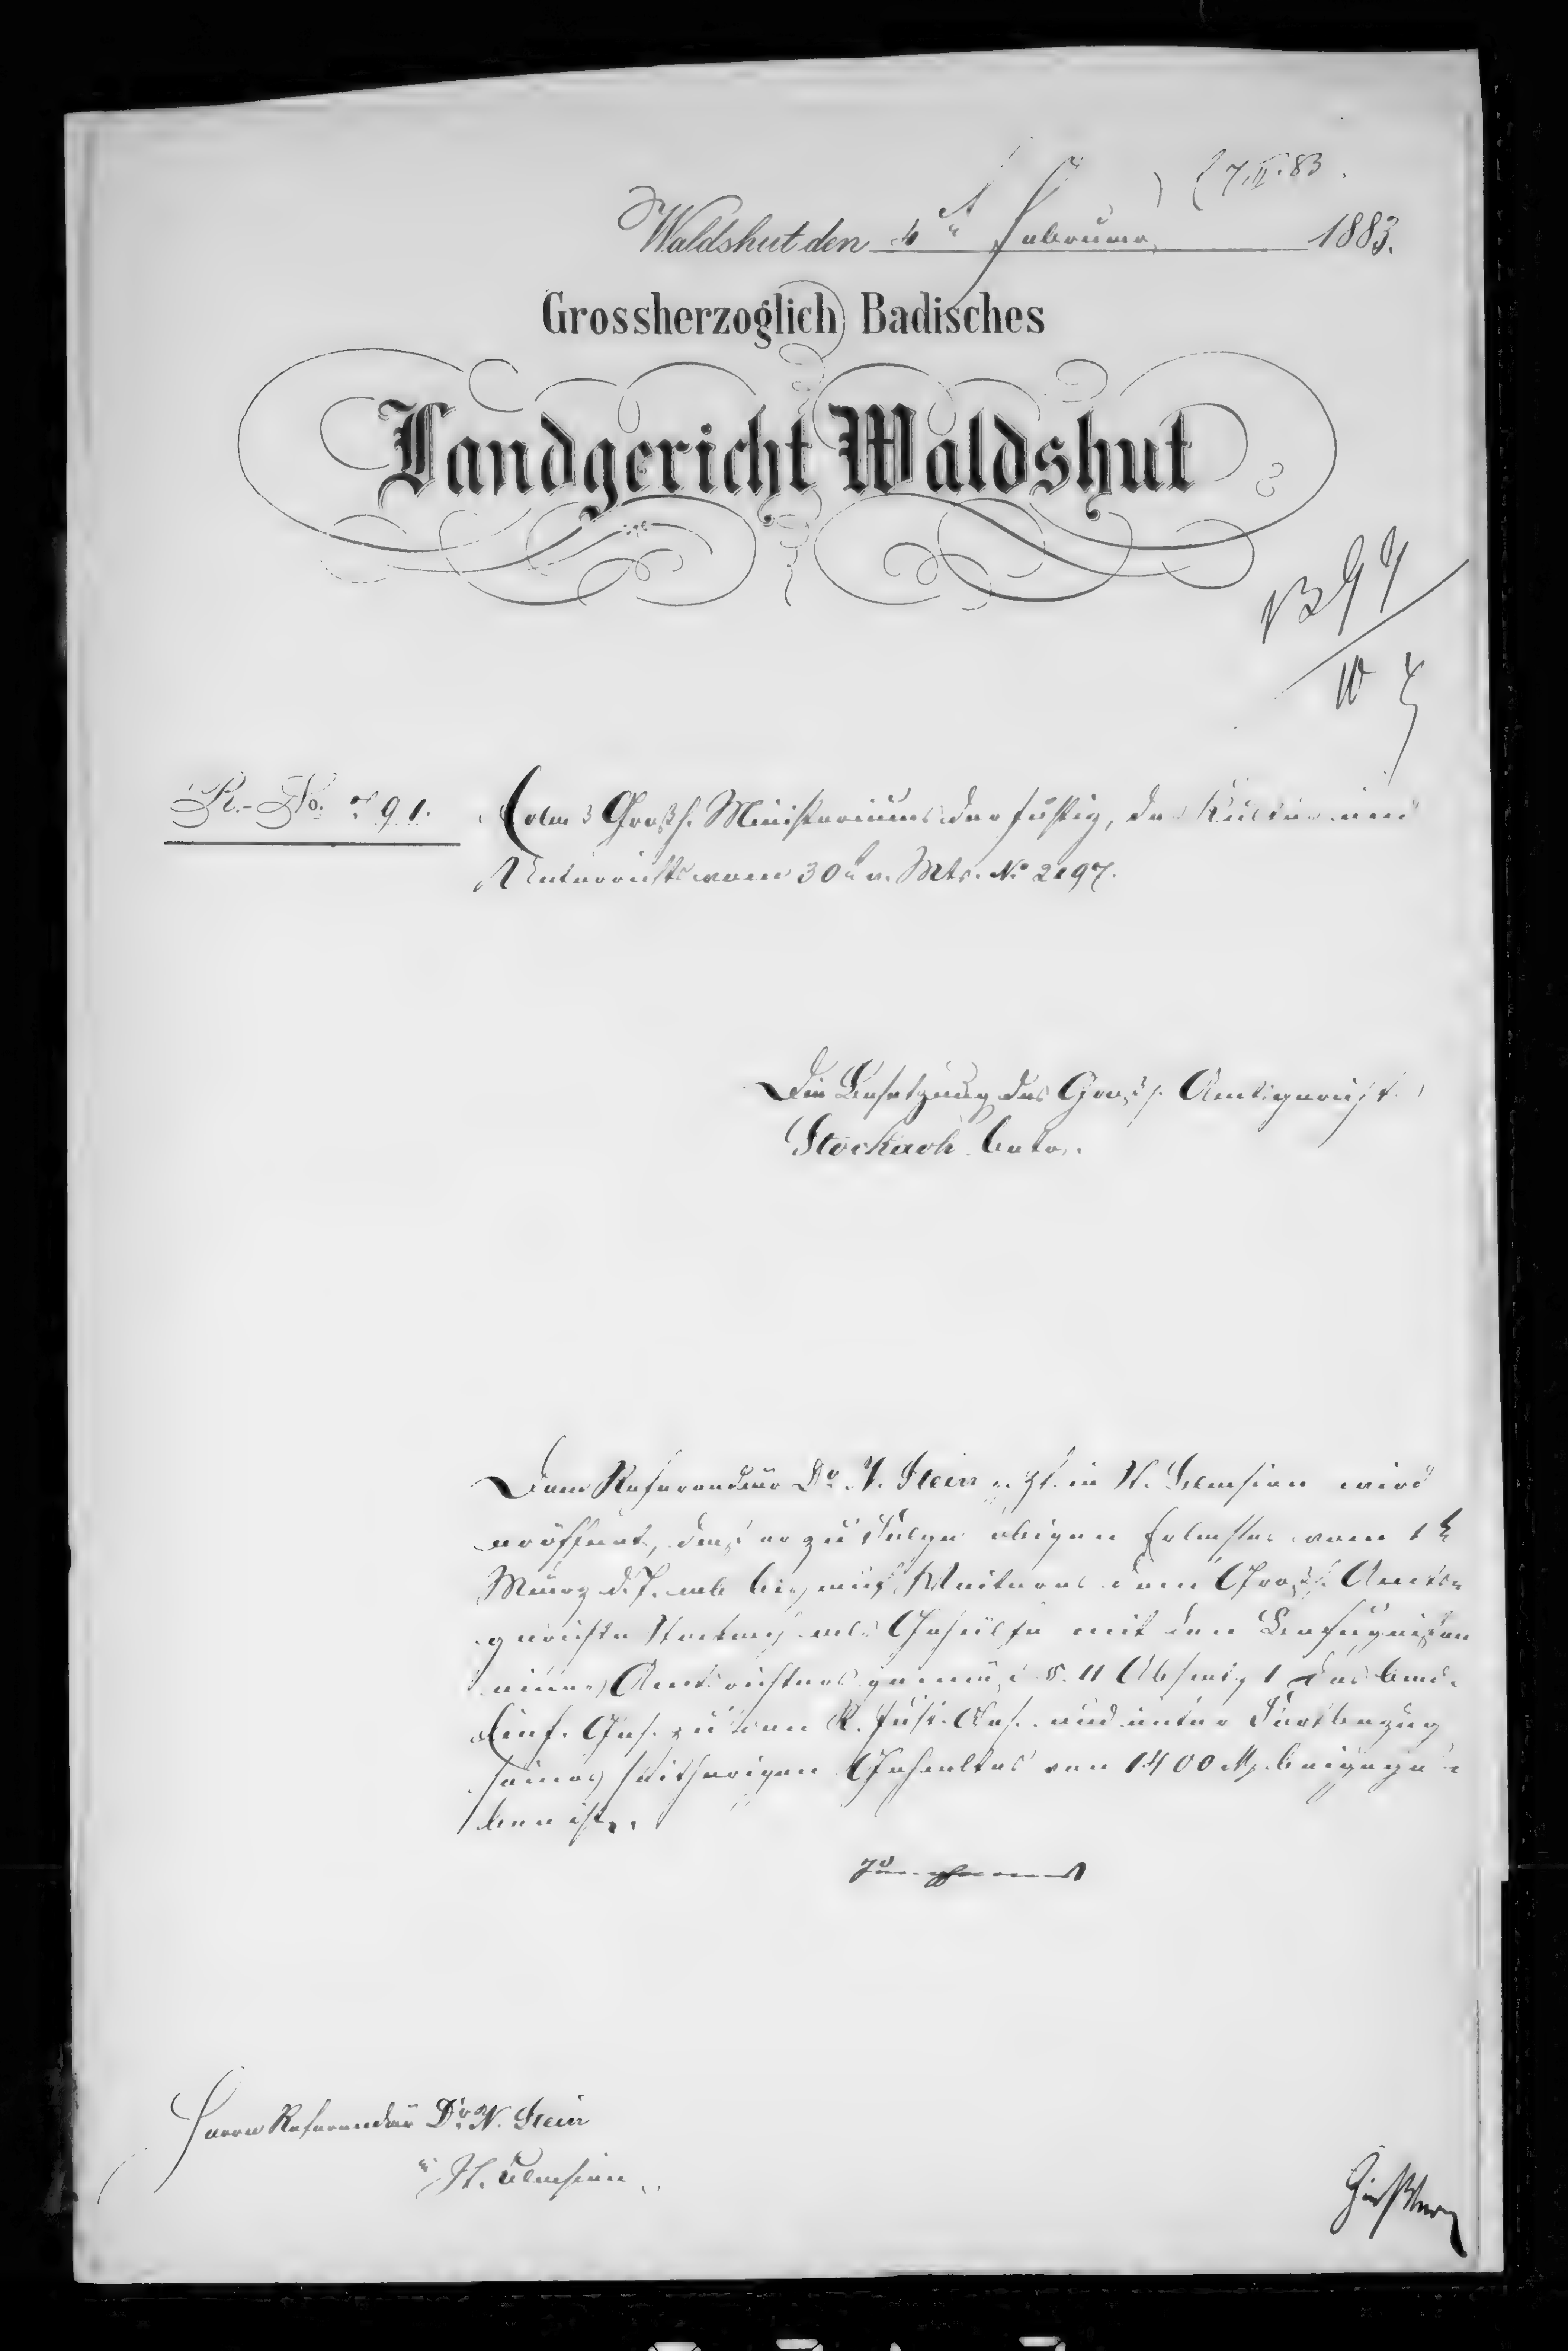 7.II.83.
Waldshut den 4ten Februar 1883.
Grossherzoglich Badisches
Landgericht Waldshut
R.-No. 791. Erlaß Großh. Ministeriums der Justiz, des Kultus und
Unterrichts vom 30. v. Mts. No 2197.
Die Besetzung des Großh. Amtsgerichts
Stockach betr.
Dem Referendär Dr. N. Stein z. Zt. in St. Blasien wird
eröffnet, daß er zu Folge obigen Erlasses vom 1ten
März d. J. ab bis auf Weiteres dem Großh. Amts-
gerichte Stockach als Gehülfe mit den Befugnissen
eines Amtsrichters gemäß §. 11 Absatz 1 des bad.
Einf. Ges. zu den R. Just. Ges. und unter Fortbezug
seines seitherigen Gehaltes von 1400 M. beigege-
ben ist.
Herrn Referendär Dr. N. Stein
in St. Blasien